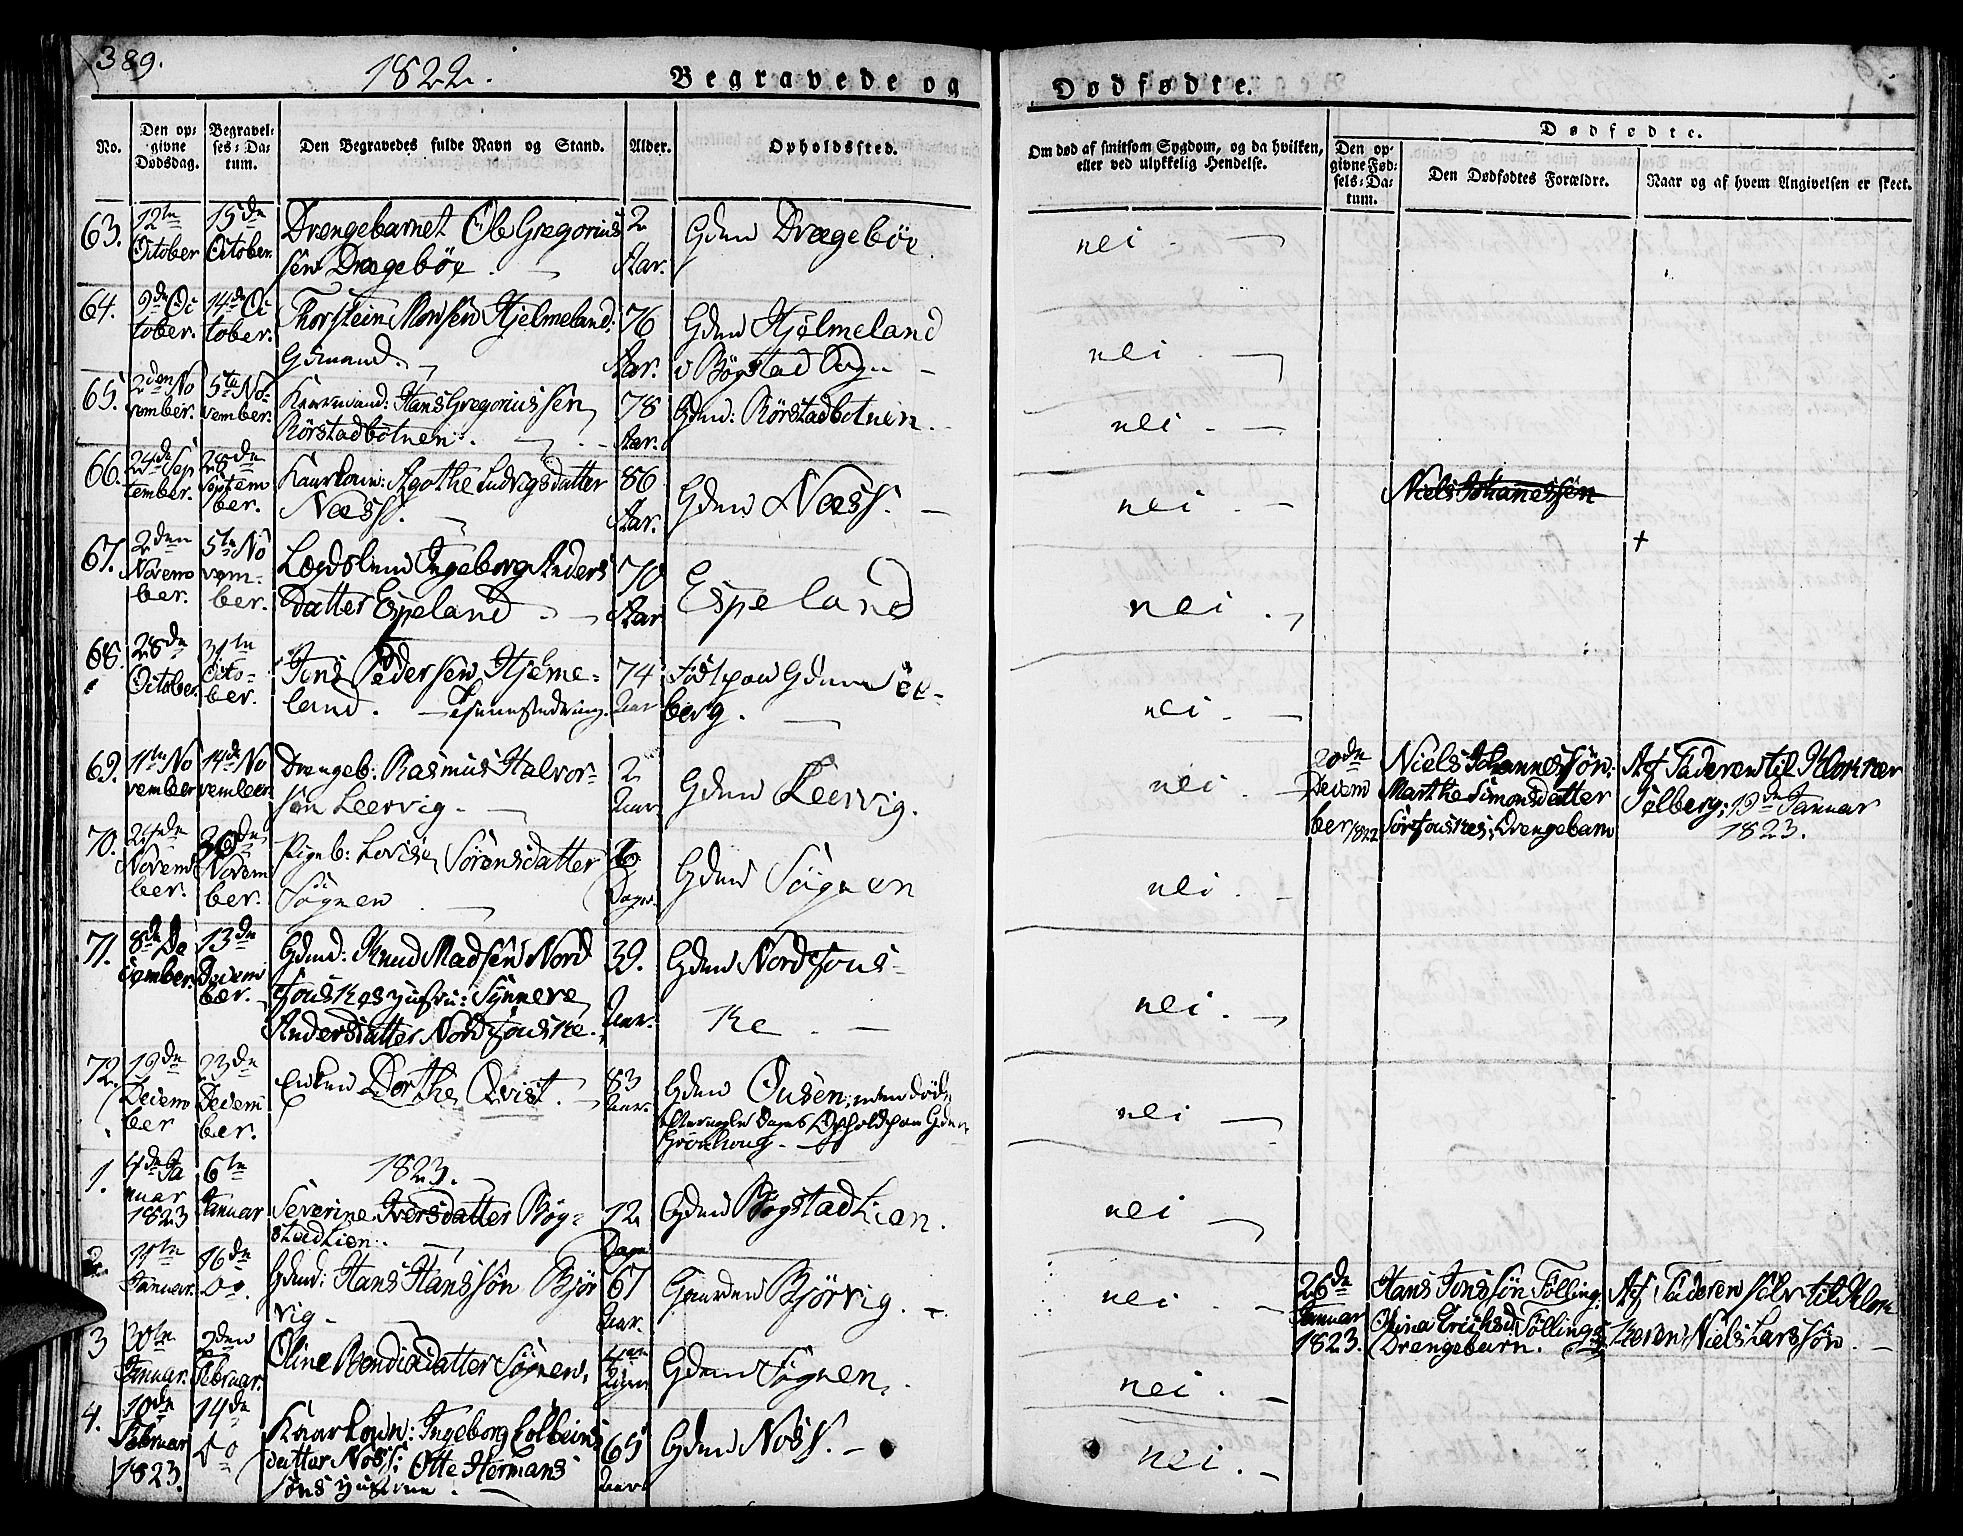 389.
1822.
Begravede og
Dødfødte.
No.
Den op=
givne
Dødsdag.
Begravel=
ses=Da=
tum.
Den Begravedes fulde Navn og Stand.
Alder.
Opholdssted.
Om død af smitsom Sygdom, og da hvilken,
eller ved ulykkelig Hendelse.
Dødfødte.
Den op=
givne Fød=
sels=Da=
tum.
Den Dødfødtes Forældre.
Naar og af hvem Angivelsen er skeet.
63.
12te
October
15de
October.
Drengebarnet Ole Gregorius
sen Drægebøe.
2
Aar.
Gden Drægebøe.
nei.
64.
9de Oc
tober.
14de Oc
tober.
Thorstein Monsen Hjelmeland:
Gdmand.
76
Aar.
Gden Hjelmeland
Bøgstad Sogn
nei.
65.
2den No
vember.
5te No=
vember.
Hans Gregoriussen
Rørstadbotnen.
78
Aar.
Gden: Rørstadbotnen.
nei.
66.
24de Sep
tember.
28de
Septem
ber.
Kaarkone: Agothe Ludvigsdatter
Næss.
86
Aar.
Gden Næss.
nei.
Niels Johanessøn
67.
2den
Novem
ber.
5te No
vem=
ber.
Lægdslem Ingeborg Anders
datter Espeland
70
Aar
Espeland
nei.
+
68.
28de
October.
31te
Octo=
ber.
Jens Pedersen Hjelme=
land.
74
Aar
Gden
berg.
nei.
69.
11te No
vember
14de No
vember.
Drengeb: Rasmus Halvor=
sen Leervig.
2
Aar
Gden Leervig.
nei.
20de
Decem
ber 1822
Niels Johannessøn:
Marthe Simonsdatter
Sørfouske; Drengebarn
Af Faderen til Klokker
Solberg; 19de Januar
1823.
70.
24de
Novem
ber.
30de
Novem
ber.
Pigeb: Lovise Sørensdatter
Søgnen
Dage.
Gden Søgnen
nei.
71.
8de De
cember.
13de
Decem
ber.
Gdmd: Knud Madsen Nord
fouskes hustru: Synneve
Andersdatter Nordfouske.
39.
Aar.
Gden Nordfous=
ke.
nei.
72.
19de
Decem
ber
23de
Decem
ber.
Enken Dorthe Qvist.
83
Aar.
Gden Ousen; men død
efter nogle Dages Ophold paa Gden
nei
1.
4de Ja
nuar
1823
6te
Januar
1823.
Severine Iversdatter Bøg=
stadlien.
12
Dage
Gden Bøgstadlien.
nei
2.
11te
Januar.
16de
do.
Gdmd: Hans Hanssøn Bjør
vig.
67
Aar.
Gaarden Bjørvig.
nei.
26de
Januar
1823.
Hans Jonssøn Følling.
Olina Erichsd. Føllings
Drengebarn.
Af Faderen selv til Klok
keren Niels Larssøn.
3
30te
Januar.
2den
Februar.
Oline Bendixdatter Søgnen,
Gden Søgnen.
nei.
4.
10de
Februar
1823.
14de
do
Kaarkone: Ingeborg Colbeins
datter Noss: Otte Hermans
søns hustrue.
65
Aar
Gden Noss.
nei.